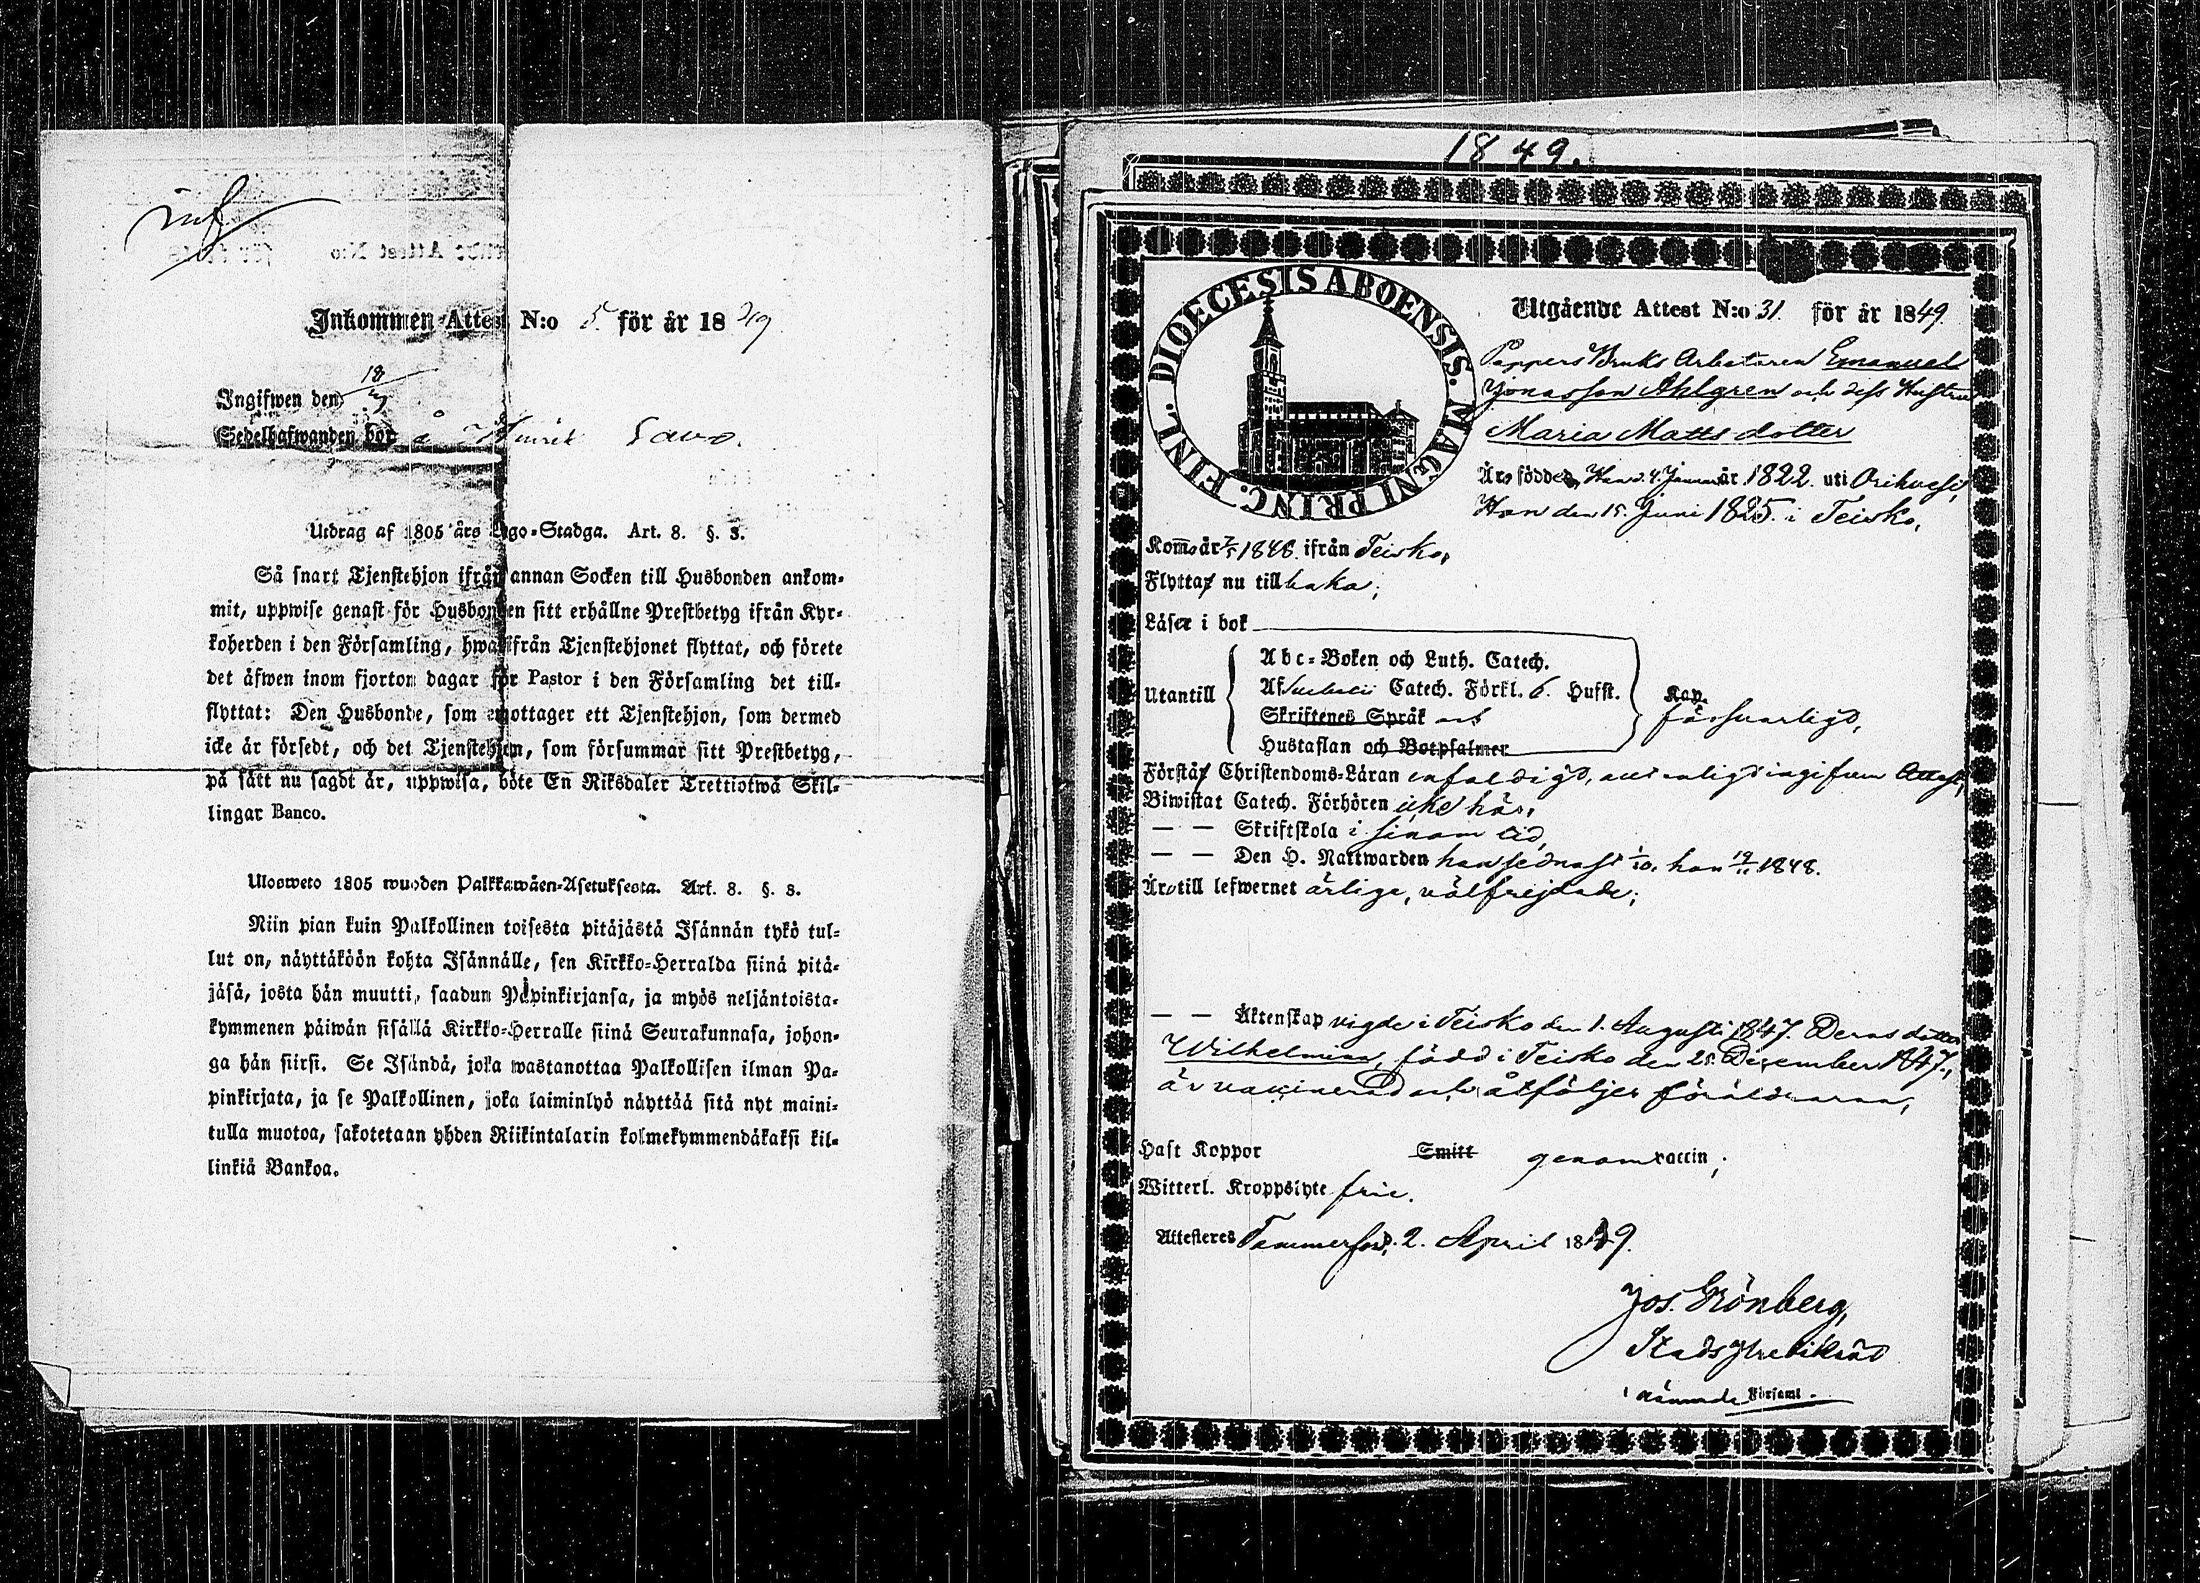 inf
Inkommen Attest N:o 5. för år 1849
Ingifwen den 18/4
Sedelhafwanden bör å
Utdrag af 1805 års Lego-Stadga. Art. 8. §. 3.
Så snart Tjenstehjon ifrån annan Socken till Husbonden ankom-
mit, uppwise genast för Husbonden sitt erhållne Prestbetyg ifrån Kyr-
koherden i den Församling, hwarifrån Tjenstehjonet flyttat, och förete
det äfwen inom fjorton dagar för Pastor i den Församling det till-
flyttat: Den Husbonde, som emottager ett Tjenstehjon, som dermed
icke är försedt, och det Tjenstehjon, som försummar sitt Prestbetyg,
på sätt nu sagdt är, uppwisa, böte En Riksdaler Trettiotwå Skil-
lingar Banco.
Ulosweto 1805 wuoden Palkkawäen-Asetuksesta. Art. 8. §. 3.
Niin pian kuin Palkollinen toisesta pitäjästä Isännän tykö tul-
lut on, näyttäköön kohta Isännälle, sen Kirkko-Herralda siinä pitä-
jäsä, josta hän muutti, saadun Papinkirjansa, ja myös neljäntoista-
kymmenen päiwän sisällä Kirkko-Herralle siinä Seurakunnasa, johon-
ga hän siirsi. Se Isändä, joka wastanottaa Palkollisen ilman Pa-
pinkirjata, ja se Palkollinen, joka laiminlyö näyttää sitä nyt maini-
tulla muotoa, sakotetaan yhden Riikintalarin kolmekymmendäkaksi kil-
linkiä Bankoa.
1849.
DIOECESIS ABOENSIS. MAGNI PRINC. FINL.
Utgående Attest N:o 31. för år 1849.
Pappers Bruks Arbetaren Emanuel
Jonasson Ahlgren och dess Hustru
Maria Matts dotter
Äro födde, Han d. 4. Januar år 1822. uti Orihvesi,
Hon den 15. Juni 1825. i Teisko,
Kommo år 7/5 1848. ifrån Teisko,
Flytta nu tillbaka;
Läser i bok
Utantill
Abc-Boken och Luth. Catech.
Af Svebelii Catech. Förkl. 6. Hufst.
Skriftenes Språk och
Hustaflan och Botpsalmer
försvarligt,
Förstå Christendoms-Läran enfaldigt, allt enligt ingifven Attest,
Biwistat Catech. Förhören icke här,
— — Skriftskola i sinom tid,
— — Den H. Nattwarden han sednast 1/10, hon 19/11 1848.
Äro till lefwernet ärlige, välfrejdade;
— — Äktenskap vigde i Teisko den 1. Augusti 1847. Deras dotter
Wilhelmina, född i Teisko den 25. December 1847,
är vaccinerad och åtföljer föräldrarna,
Haft Koppor Smitt genom vaccin;
Witterl. Kroppslyte frie.
Attesteres Tammerfors, 2. April 1849.
Jos. Grönberg,
Stads Predikant
i nämnde Församl.